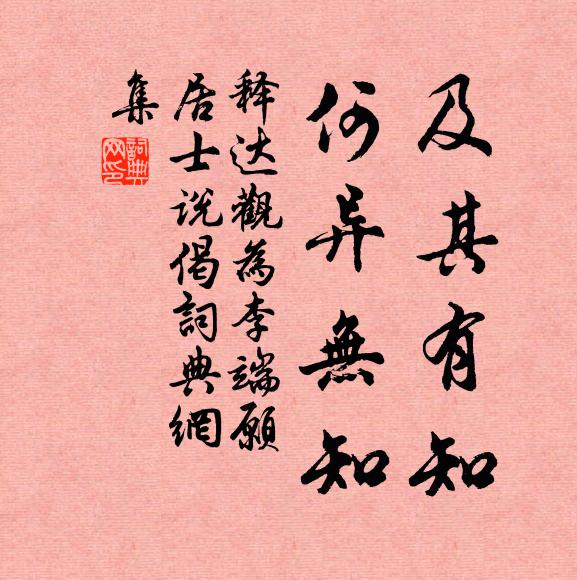 及其有知
何异無知
释达觀為李端願
居士说偈詞典網
集
詞典
网印